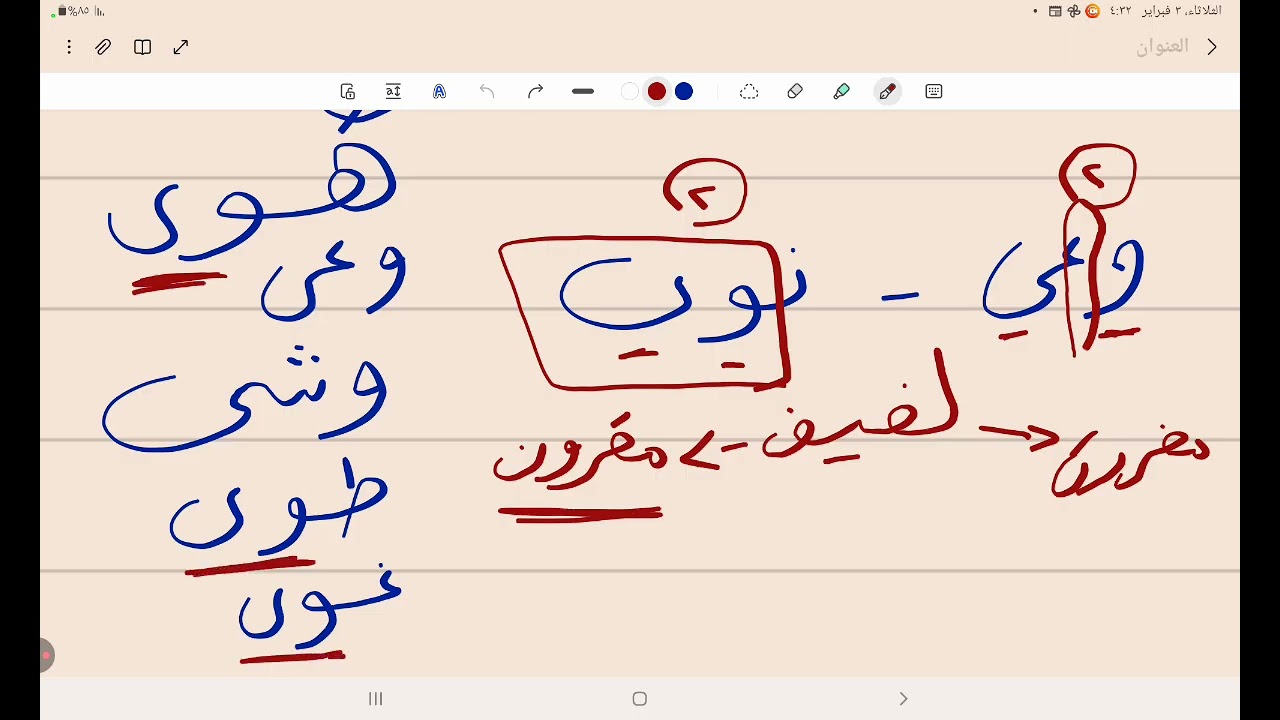 الثلاثاء، ٣ فبراير ٤:٣٢
٪٨٥
العنوان
هوى
٢ ٢
وعي - نوى
وعى
وشى
لفيف -> مقرون
طوى
غوى